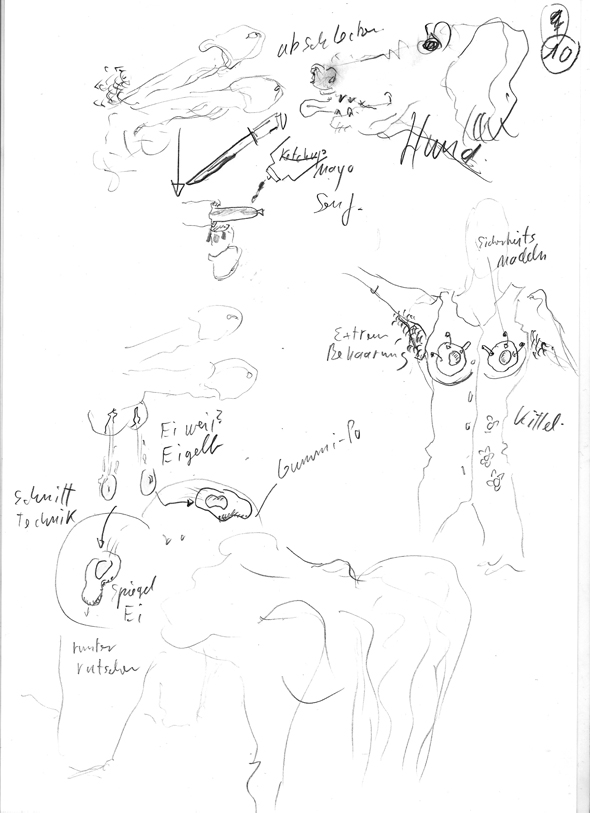 9
10
abschlecken
Hund
Ketchup
Mayo
Senf.
Sicherheits
Nadeln
Extrem
Behaarung
Kittel.
Eiweiß
Eigelb
Gummi-Po
Schnitt
technik
Spiegel
Ei
runter
rutschen